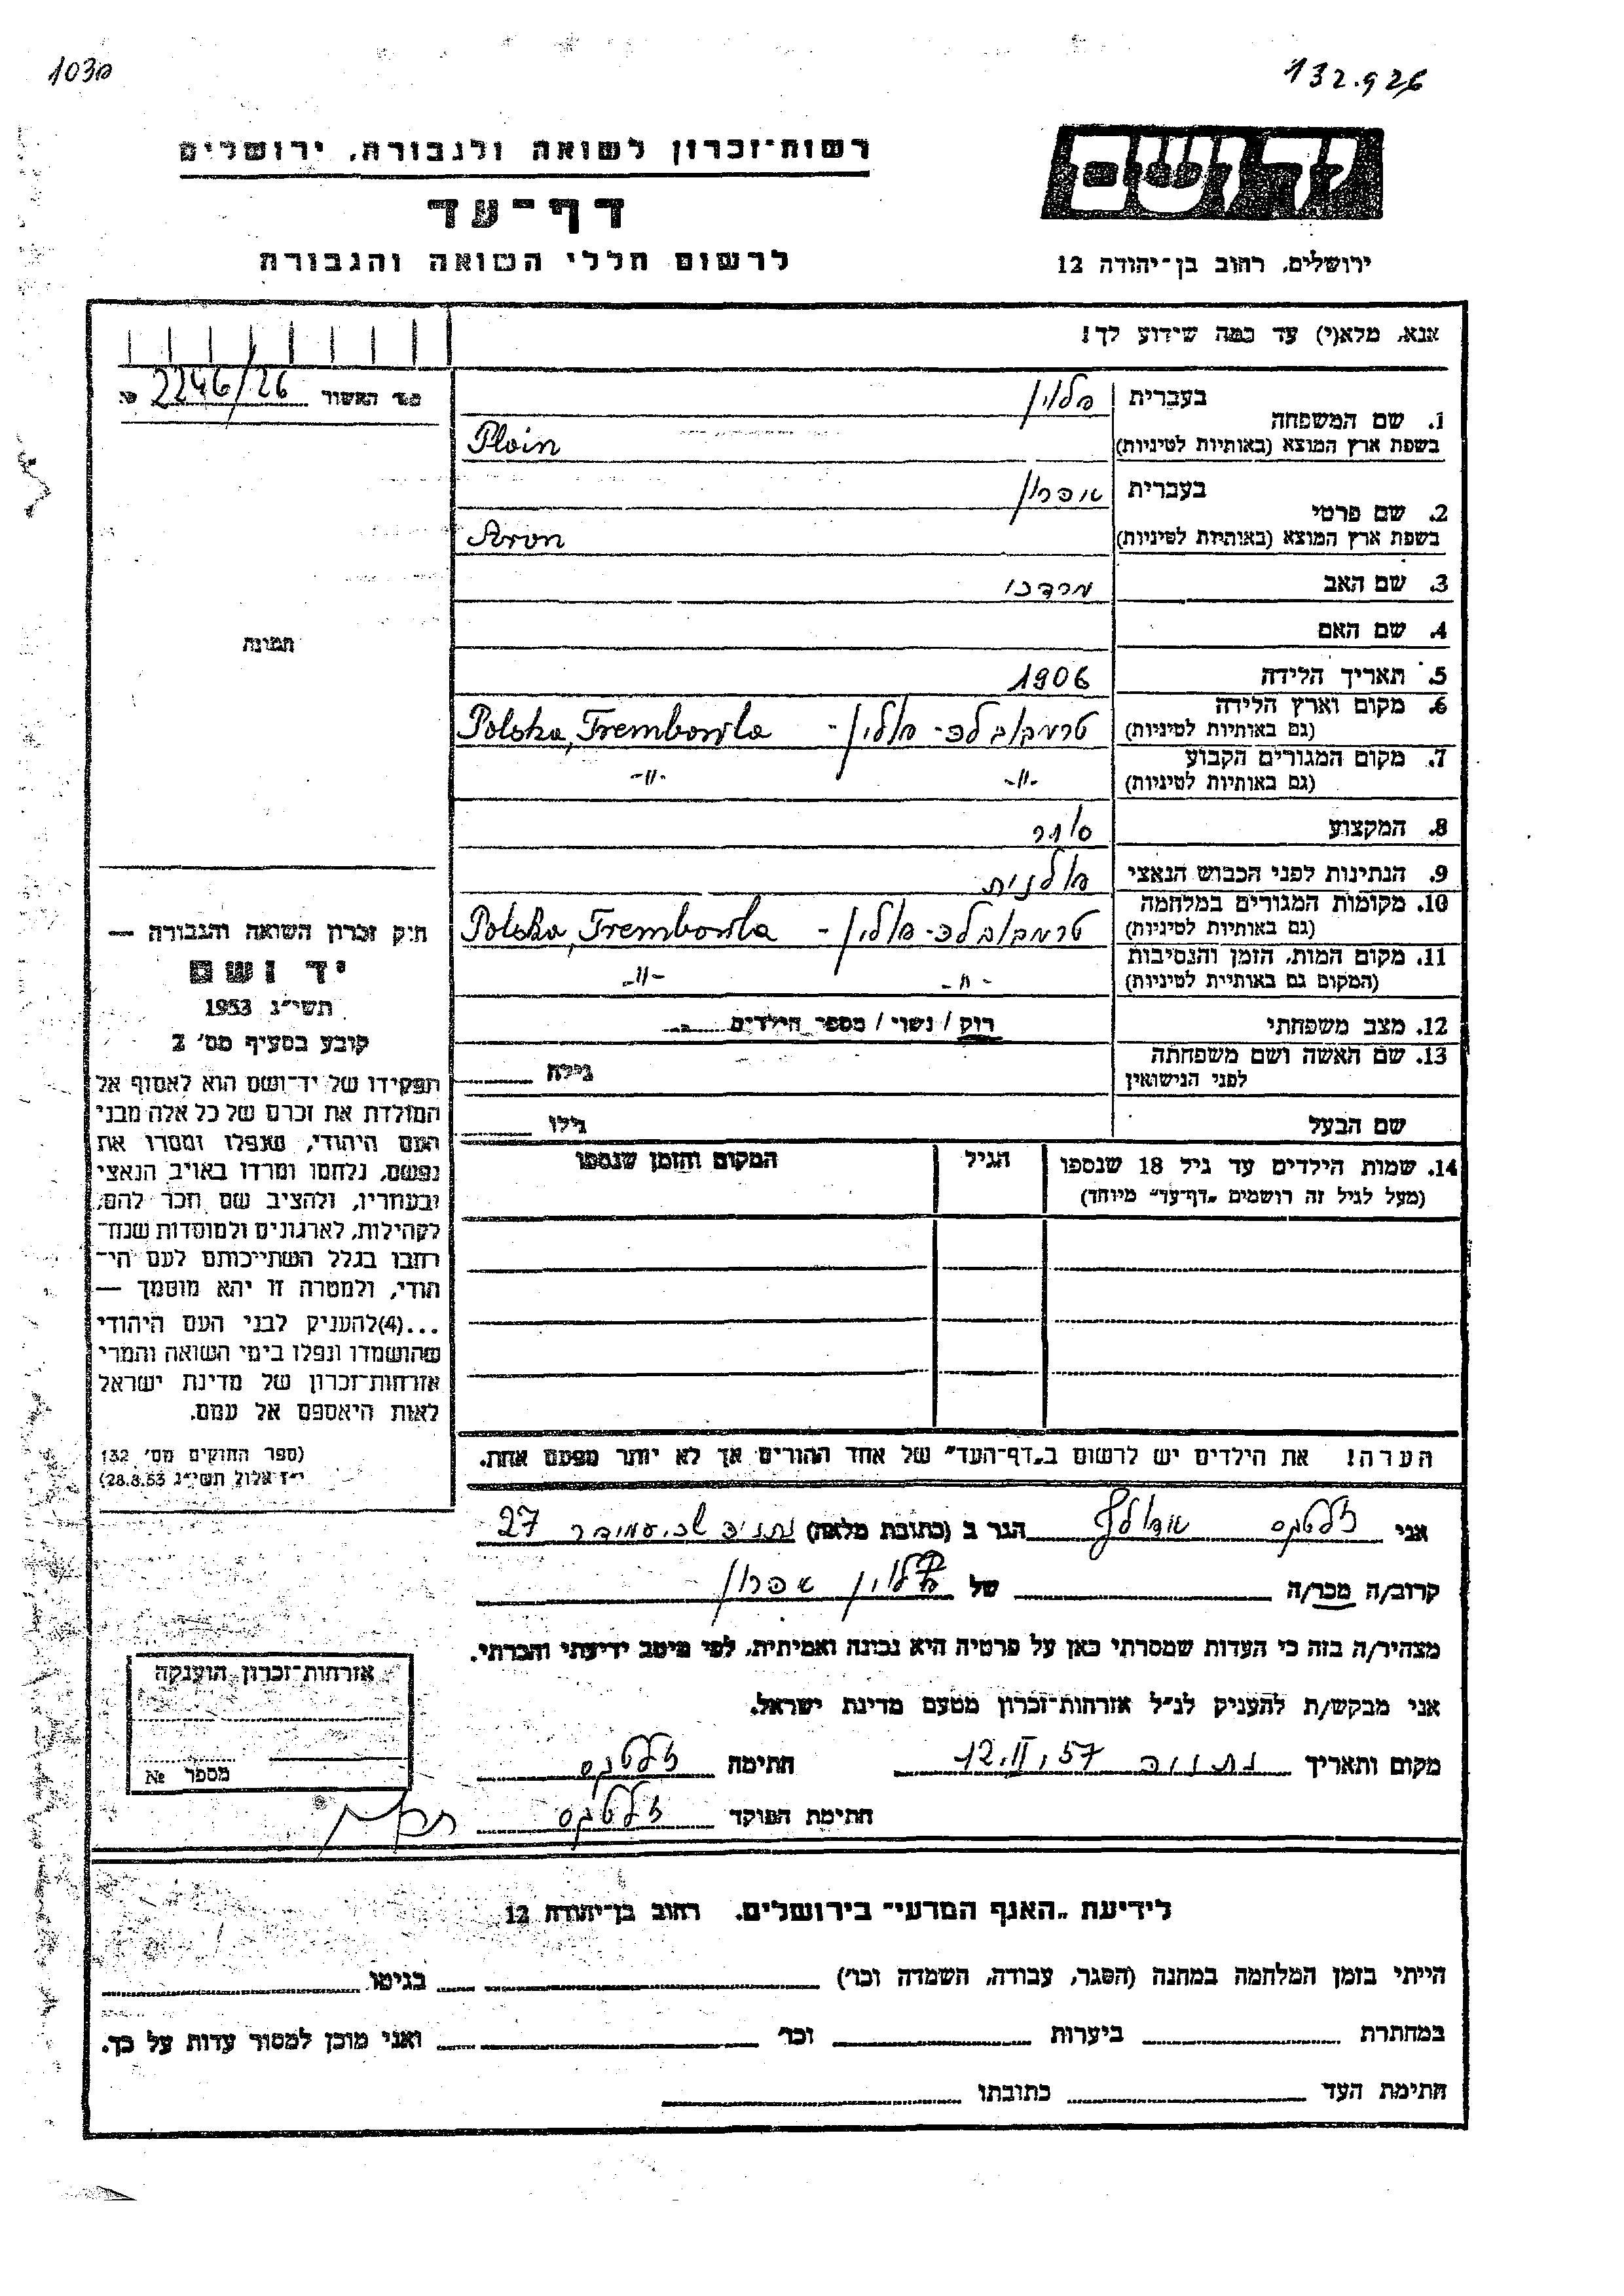 103פ
132.926
יד ושם
רשות־זכרון לשואה ולגבורה, ירושלים
דף־עד
לרשום חללי השואה והגבורה
ירושלים, רחוב בן־יהודה 12
אנא, מלא(י) עד כמה שידוע לך!
מס' האשור 2246/26 №
1. שם המשפחה בעברית פלוין
בשפת ארץ המוצא (באותיות לטיניות) Ploin
2. שם פרטי בעברית אהרון
בשפת ארץ המוצא (באותיות לטיניות) Aron
3. שם האב מרדכי
4. שם האם
תמונה
5. תאריך הלידה 1906
6. מקום וארץ הלידה (גם באותיות לטיניות) טרמבובלה - פולין - Polska, Trembowla
7. מקום המגורים הקבוע (גם באותיות לטיניות) -"- -"-
8. המקצוע סוחר
9. הנתינות לפני הכבוש הנאצי פולנית
10. מקומות המגורים במלחמה (גם באותיות לטיניות) טרמבובלה - פולין - Polska, Trembowla
11. מקום המות, הזמן והנסיבות (המקום גם באותיות לטיניות) -"- -"-
12. מצב משפחתי רוק / נשוי / מספר הילדים
13. שם האשה ושם משפחתה לפני הנישואין גילה
שם הבעל גילו
14. שמות הילדים עד גיל 18 שנספו הגיל המקום והזמן שנספו
(מעל לגיל זה רושמים „דף־עד" מיוחד)
חוק זכרון השואה והגבורה —
יד ושם
תשי״ג 1953
קובע בסעיף מס' 2
תפקידו של יד־ושם הוא לאסוף אל
המולדת את זכרם של כל אלה מבני
העם היהודי, שנפלו ומסרו את
נפשם, נלחמו ומרדו באויב הנאצי
ובעוזריו, ולהציב שם וזכר להם,
לקהילות, לארגונים ולמוסדות שנח־
רחבו בגלל השתייכותם לעם הי־
הודי, ולמטרה זו יהא מוסמך —
...(4)להעניק לבני העם היהודי
שהושמדו ונפלו בימי השואה והמרי
אזרחות־זכרון של מדינת ישראל
לאות היאספם אל עמם.
(ספר החוקים מס' 132
י״ז אלול תשי״ג 28.8.53)
הערה! את הילדים יש לרשום ב„דף־העד" של אחד ההורים אך לא יותר מפעם אחת.
אני זלטקס אדולף הגר ב (כתובת מלאה) נתניה שכ. עמידר 27
קרוב/ה מכר/ה של פלוין אהרון
מצהיר/ה בזה כי העדות שמסרתי כאן על פרטיה היא נכונה ואמיתית, לפי מיטב ידיעתי והכרתי.
אני מבקש/ת להעניק לנ״ל אזרחות־זכרון מטעם מדינת ישראל.
מקום ותאריך נתניה 12.II.57 חתימה זלטקס
חתימת הפוקד זלטקס
אזרחות־זכרון הוענקה
מספר №
לידיעת „האגף המדעי" בירושלים, רחוב בן־יהודה 12
הייתי בזמן המלחמה במחנה (הסגר, עבודה, השמדה וכו') בגיטו
במחתרת ביערות וכו' ואני מוכן למסור עדות על כך.
חתימת העד כתובתו